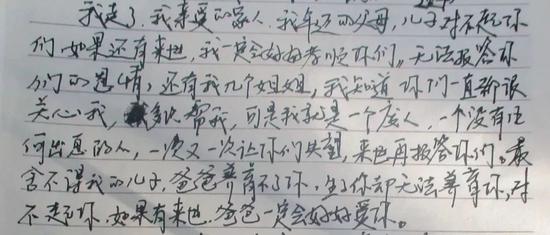 我走了，我亲爱的家人，我年迈的父母，儿子对不起你
们，如果还有来世，我一定会好好孝顺你们。无法报答你
们的恩情，还有我几个姐姐，我知道你们一直都很
关心我，帮我，可是我就是一个废人，一个没有任
何出息的人，一次又一次让你们失望，来世再报答你们。最
舍不得我的儿子，爸爸养育不了你，生了你却无法养育你，对
不起你，如果有来世，爸爸一定会好好爱你。